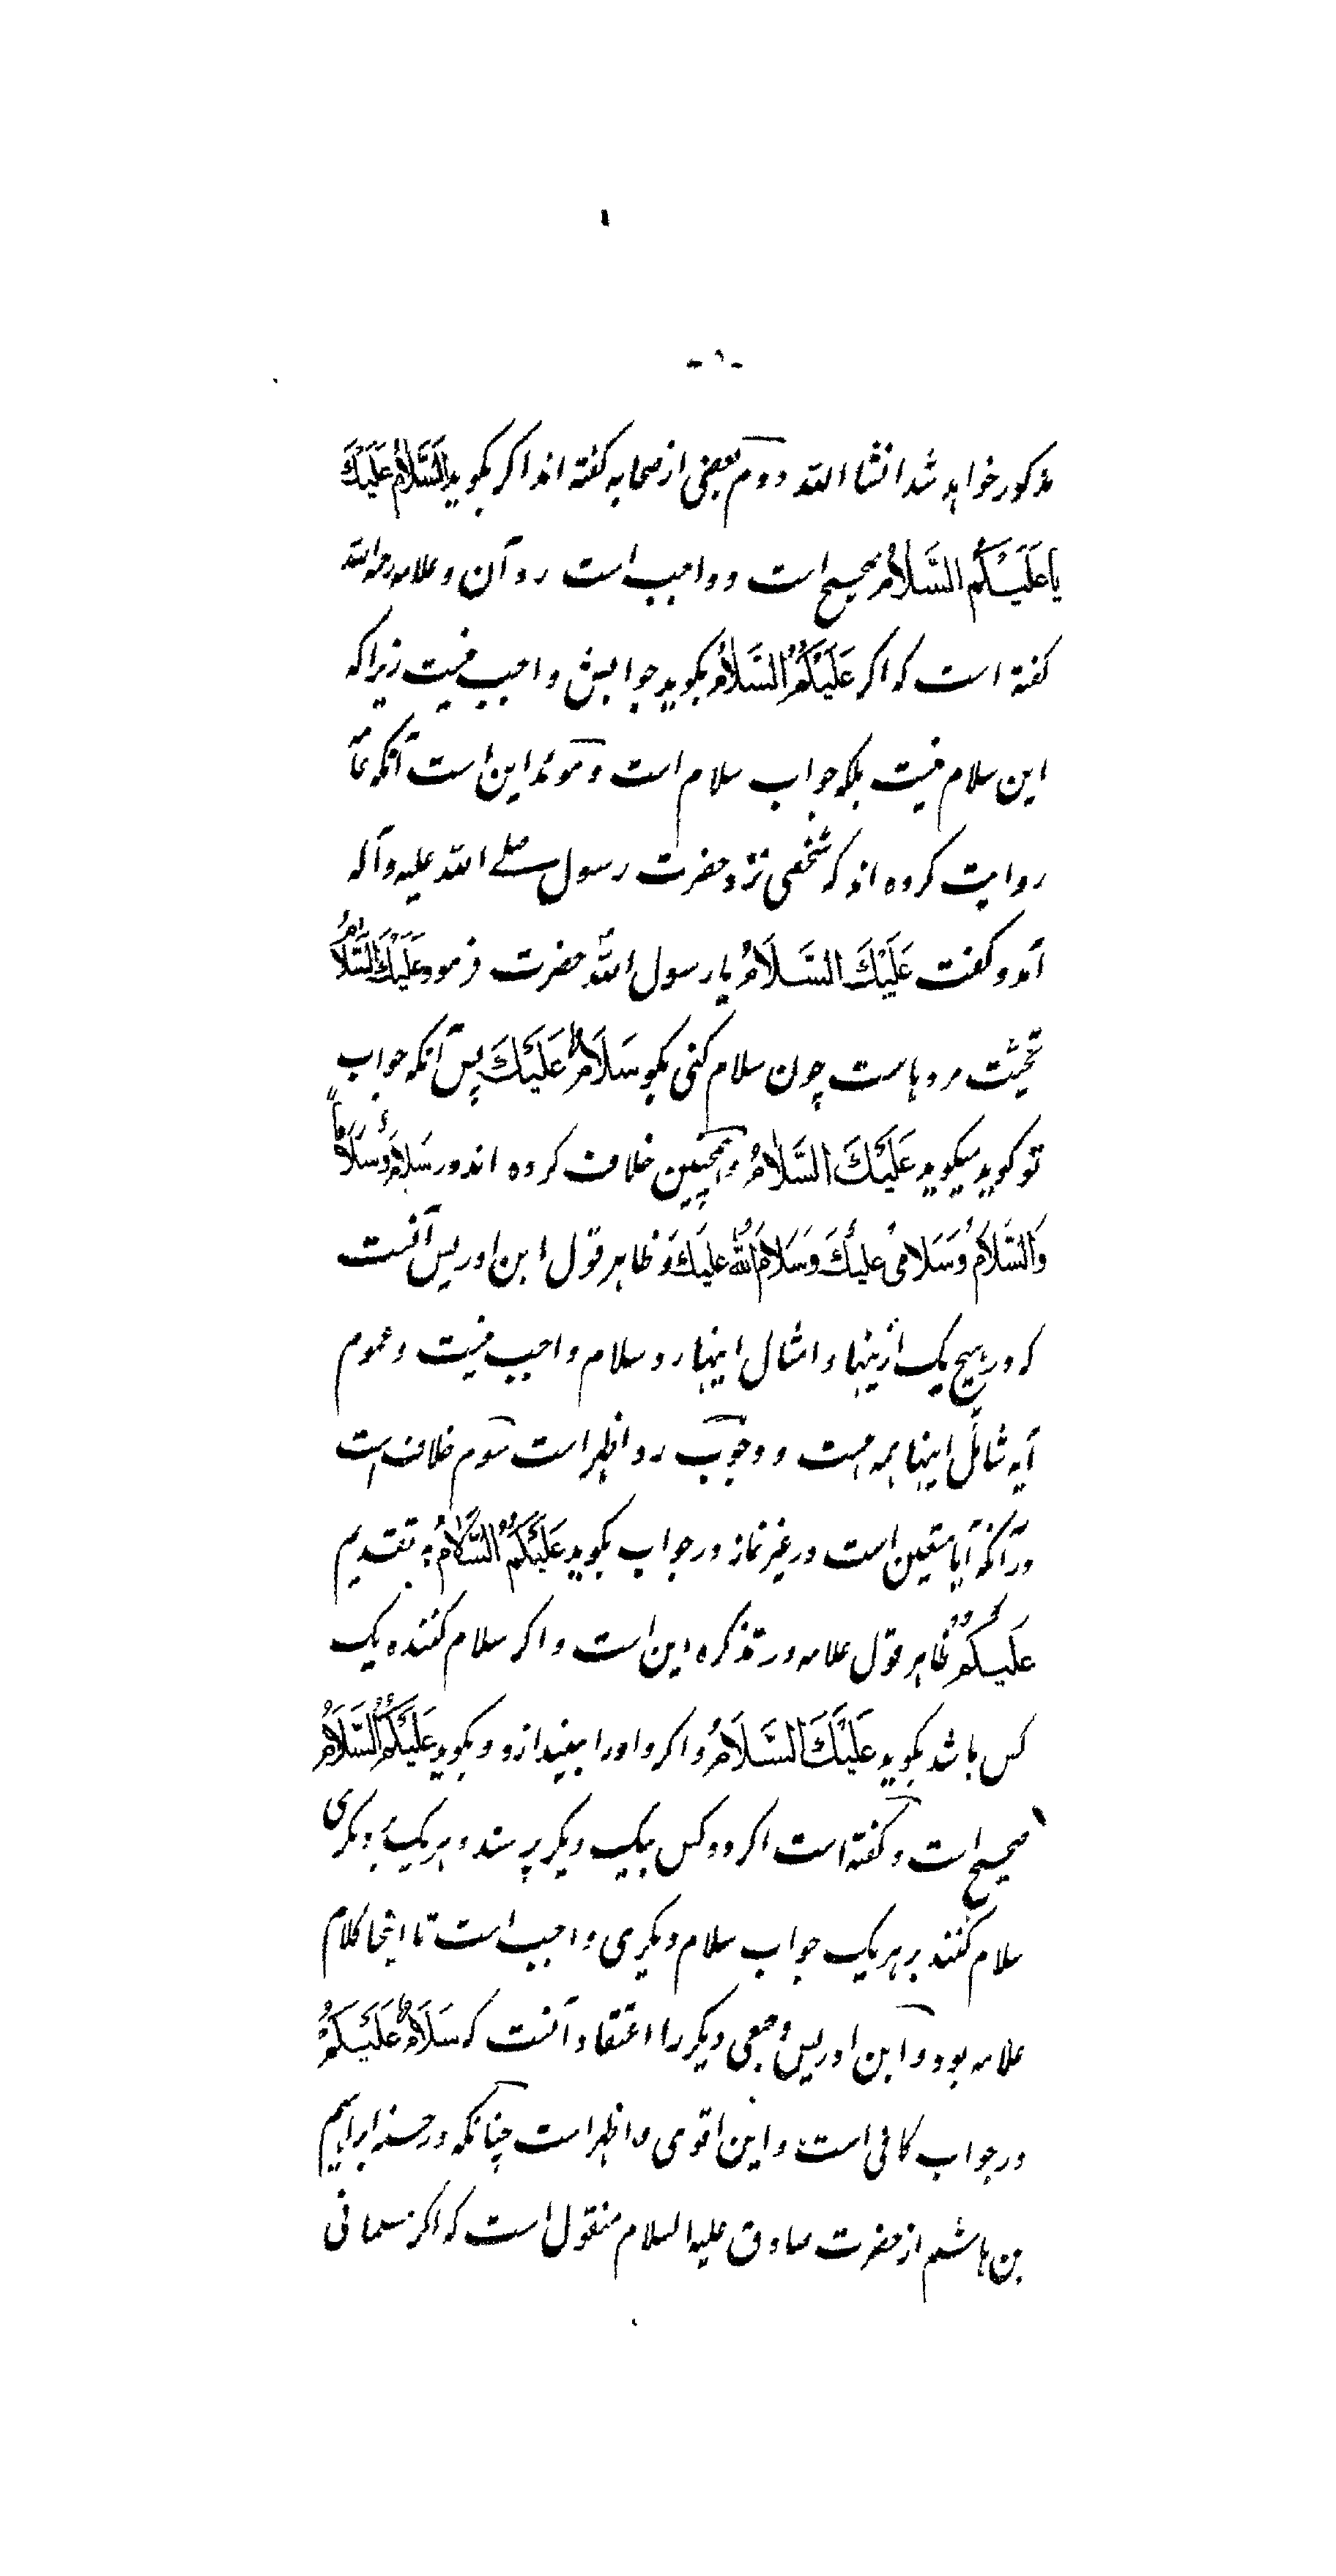 مذکور خواهد شد انشا الله دوم بعضی از صحابه کفته اند اکر بکوید السَّلامُ عَلَیْكَ
یا عَلَیْکُمُ السَّلامُ صحیح است و واجب است رد آن و علامه رحمه الله
کفته است که اکر عَلَیْکُمُ السَّلامُ بکوید جوابش واجب نیست زیرا که
این سلام نیست بلکه جواب سلام است و موئد این است آنکه عامّه
روایت کرده اند که شخصی نزد حضرت رسول صلے الله علیه وآله
آمد و کفت عَلَیْكَ السَّلامُ یا رسول الله حضرت فرمود عَلَیْكَ السَّلامُ
تحیّت مردهاست چون سلام کنی بکو سَلامٌ عَلَیْكَ پس آنکه جواب
تو کوید میکوید عَلَیْكَ السَّلامُ و همچنین خلاف کرده اند در سَلامٌ وَسَلاماً
وَالسَّلامُ وَسَلامی عَلیْكَ وَسَلامُ اللهِ عَلیْكَ وَ ظاهر قول ابن ادریس آنست
که در هیچ یک ازینها و امثال اینها رد سلام واجب نیست و عموم
آیه شامل اینها همه هست و وجوب رد اظهر است سوم خلاف است
در آنکه آیا متعین است در غیر نماز در جواب بکوید عَلَیْکُمُ السَّلامُ به تقدیم
عَلَیْکُمْ ظاهر قول علامه در تذکره این است و اکر سلام کننده یک
کس باشد بکوید عَلَیْكَ السَّلامُ و اکر واو را بیندازد و بکوید عَلَیْکُمُ السَّلامُ
صحیح است و کفته است اکر دو کس بیک دیکر برسند و هر یک بدیکری
سلام کنند بر هر یک جواب سلام دیکری واجب است تا اینجا کلام
علامه بود و ابن ادریس و جمعی دیکر را اعتقاد آنست که سَلامٌ عَلَیْکُمْ
در جواب کافی است و این اقوی و اظهر است چنانکه در حسنه ابراهیم
بن هاشم از حضرت صادق علیه السلام منقول است که اکر مسلمانی